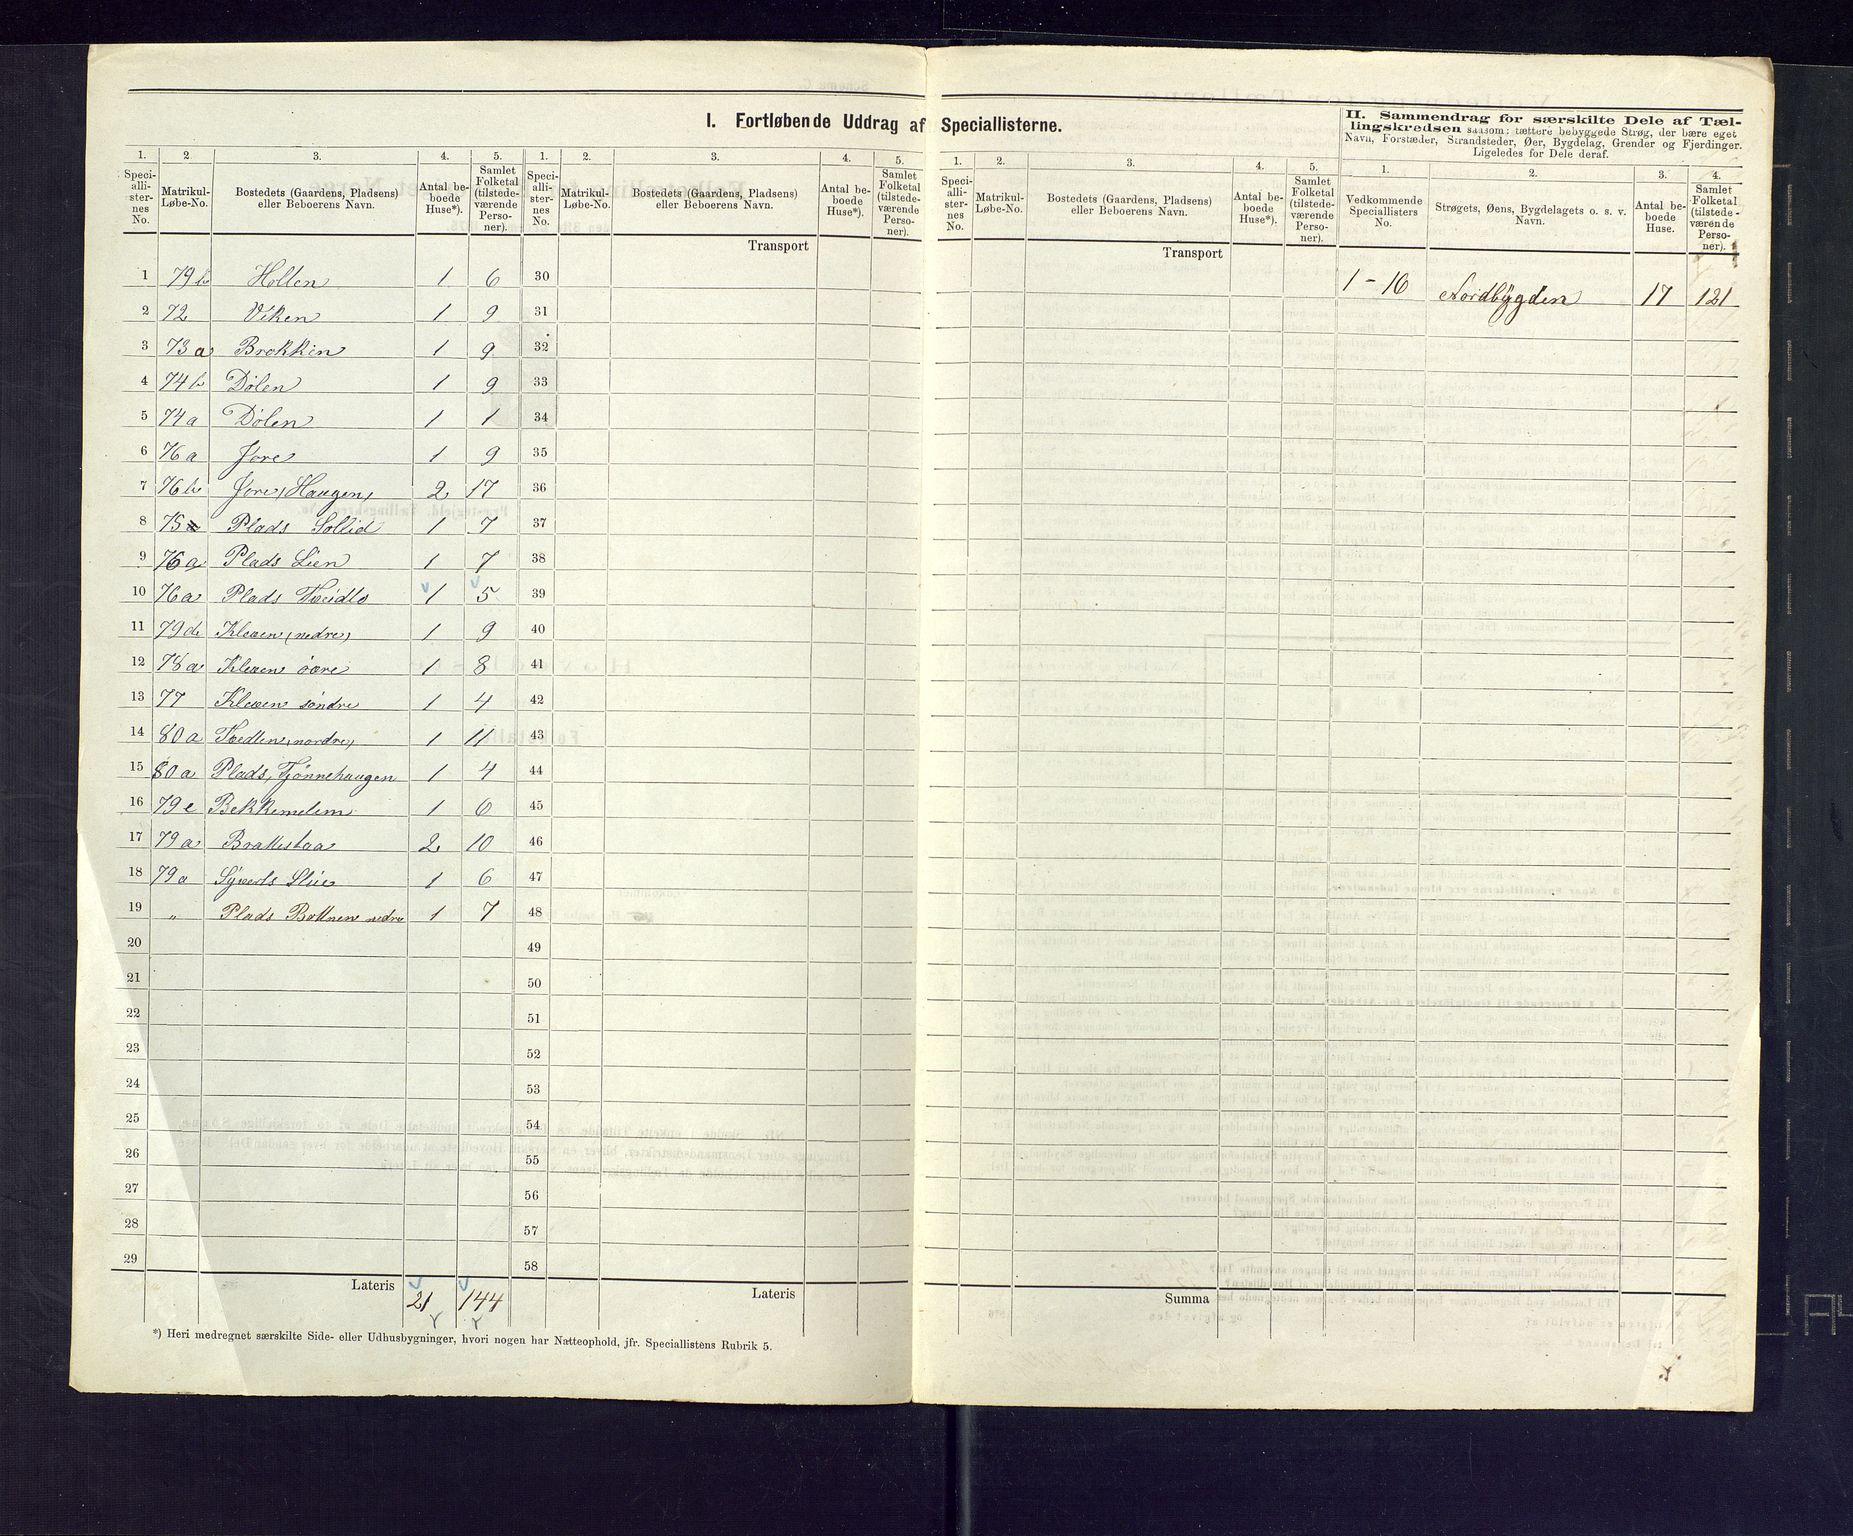 I. Fortløbende Uddrag af Speciallisterne.
1. 2 3. 4. 5. 1. 2. 3. 4. 5.
Speci-alli-ster-nes No. Matrikul-Løbe-No. Bostedets (Gaardens, Pladsens) eller Beboerens Navn. Antal be-boede Huse*). Samlet Folketal (tilstede-værende Perso-ner).
Speci-alli-ster-nes No. Matrikul-Løbe-No. Bostedets (Gaardens, Pladsens) eller Beboerens Navn. Antal be-boede Huse*). Samlet Folketal (tilstede-værende Perso-ner).
Transport
1 79b Hollen 1 6 30
2 72 Viken 1 9 31
3 73a Brokken 1 9 32
4 74b Dølen 1 9 33
5 74a Dølen 1 1 34
6 76a Jore 1 9 35
7 76b Jore (Haugen) 2 17 36
8 75 Plads Sollid 1 7 37
9 76a Plads Lien 1 7 38
10 76a Plads 1 5 39
11 79d Kleven (nedre) 1 9 40
12 78a Kleven övre 1 8 41
13 77 Kleven søndre 1 4 42
14 80a (nordre) 1 11 43
15 80a Plads, Tjønnehaugen 1 4 44
16 79e Bekkemelem 1 6 45
17 79a Brattestaa 2 10 46
18 79a Syverts 1 6 47
19 " Plads Bottnen nedre 1 7 48
20 49
21 50
22 51
23 52
24 53
25 54
26 55
27 56
28 57
29 58
Lateris 21 144 Lateris
*) Heri medregnet særskilte Side- eller Udhusbygninger, hvori nogen har Natteophold, jfr. Speciallistens Rubrik 5.
1. 2. 3. 4. 5.
Speci-alli-ster-nes No. Matrikul-Løbe-No. Bostedets (Gaardens, Pladsens) eller Beboerens Navn. Antal be-boede Huse*). Samlet Folketal (tilstede-værende Perso-ner).
Transport
Summa
II. Sammendrag for særskilte Dele af Tæl-
lingskredsen saasom: tættere bebyggede Strøg, der bære eget
Navn, Forstæder, Strandsteder, Øer, Bygdelag, Grender og Fjerdinger.
Ligeledes for Dele deraf.
1. 2. 3. 4.
Vedkommende Speciallisters No. Strøgets, Øens, Bygdelagets o. s. v. Navn. Antal be-boede Huse. Samlet Folketal (tilstede-værende Perso-ner).
1-16 Nordbygden 17 121